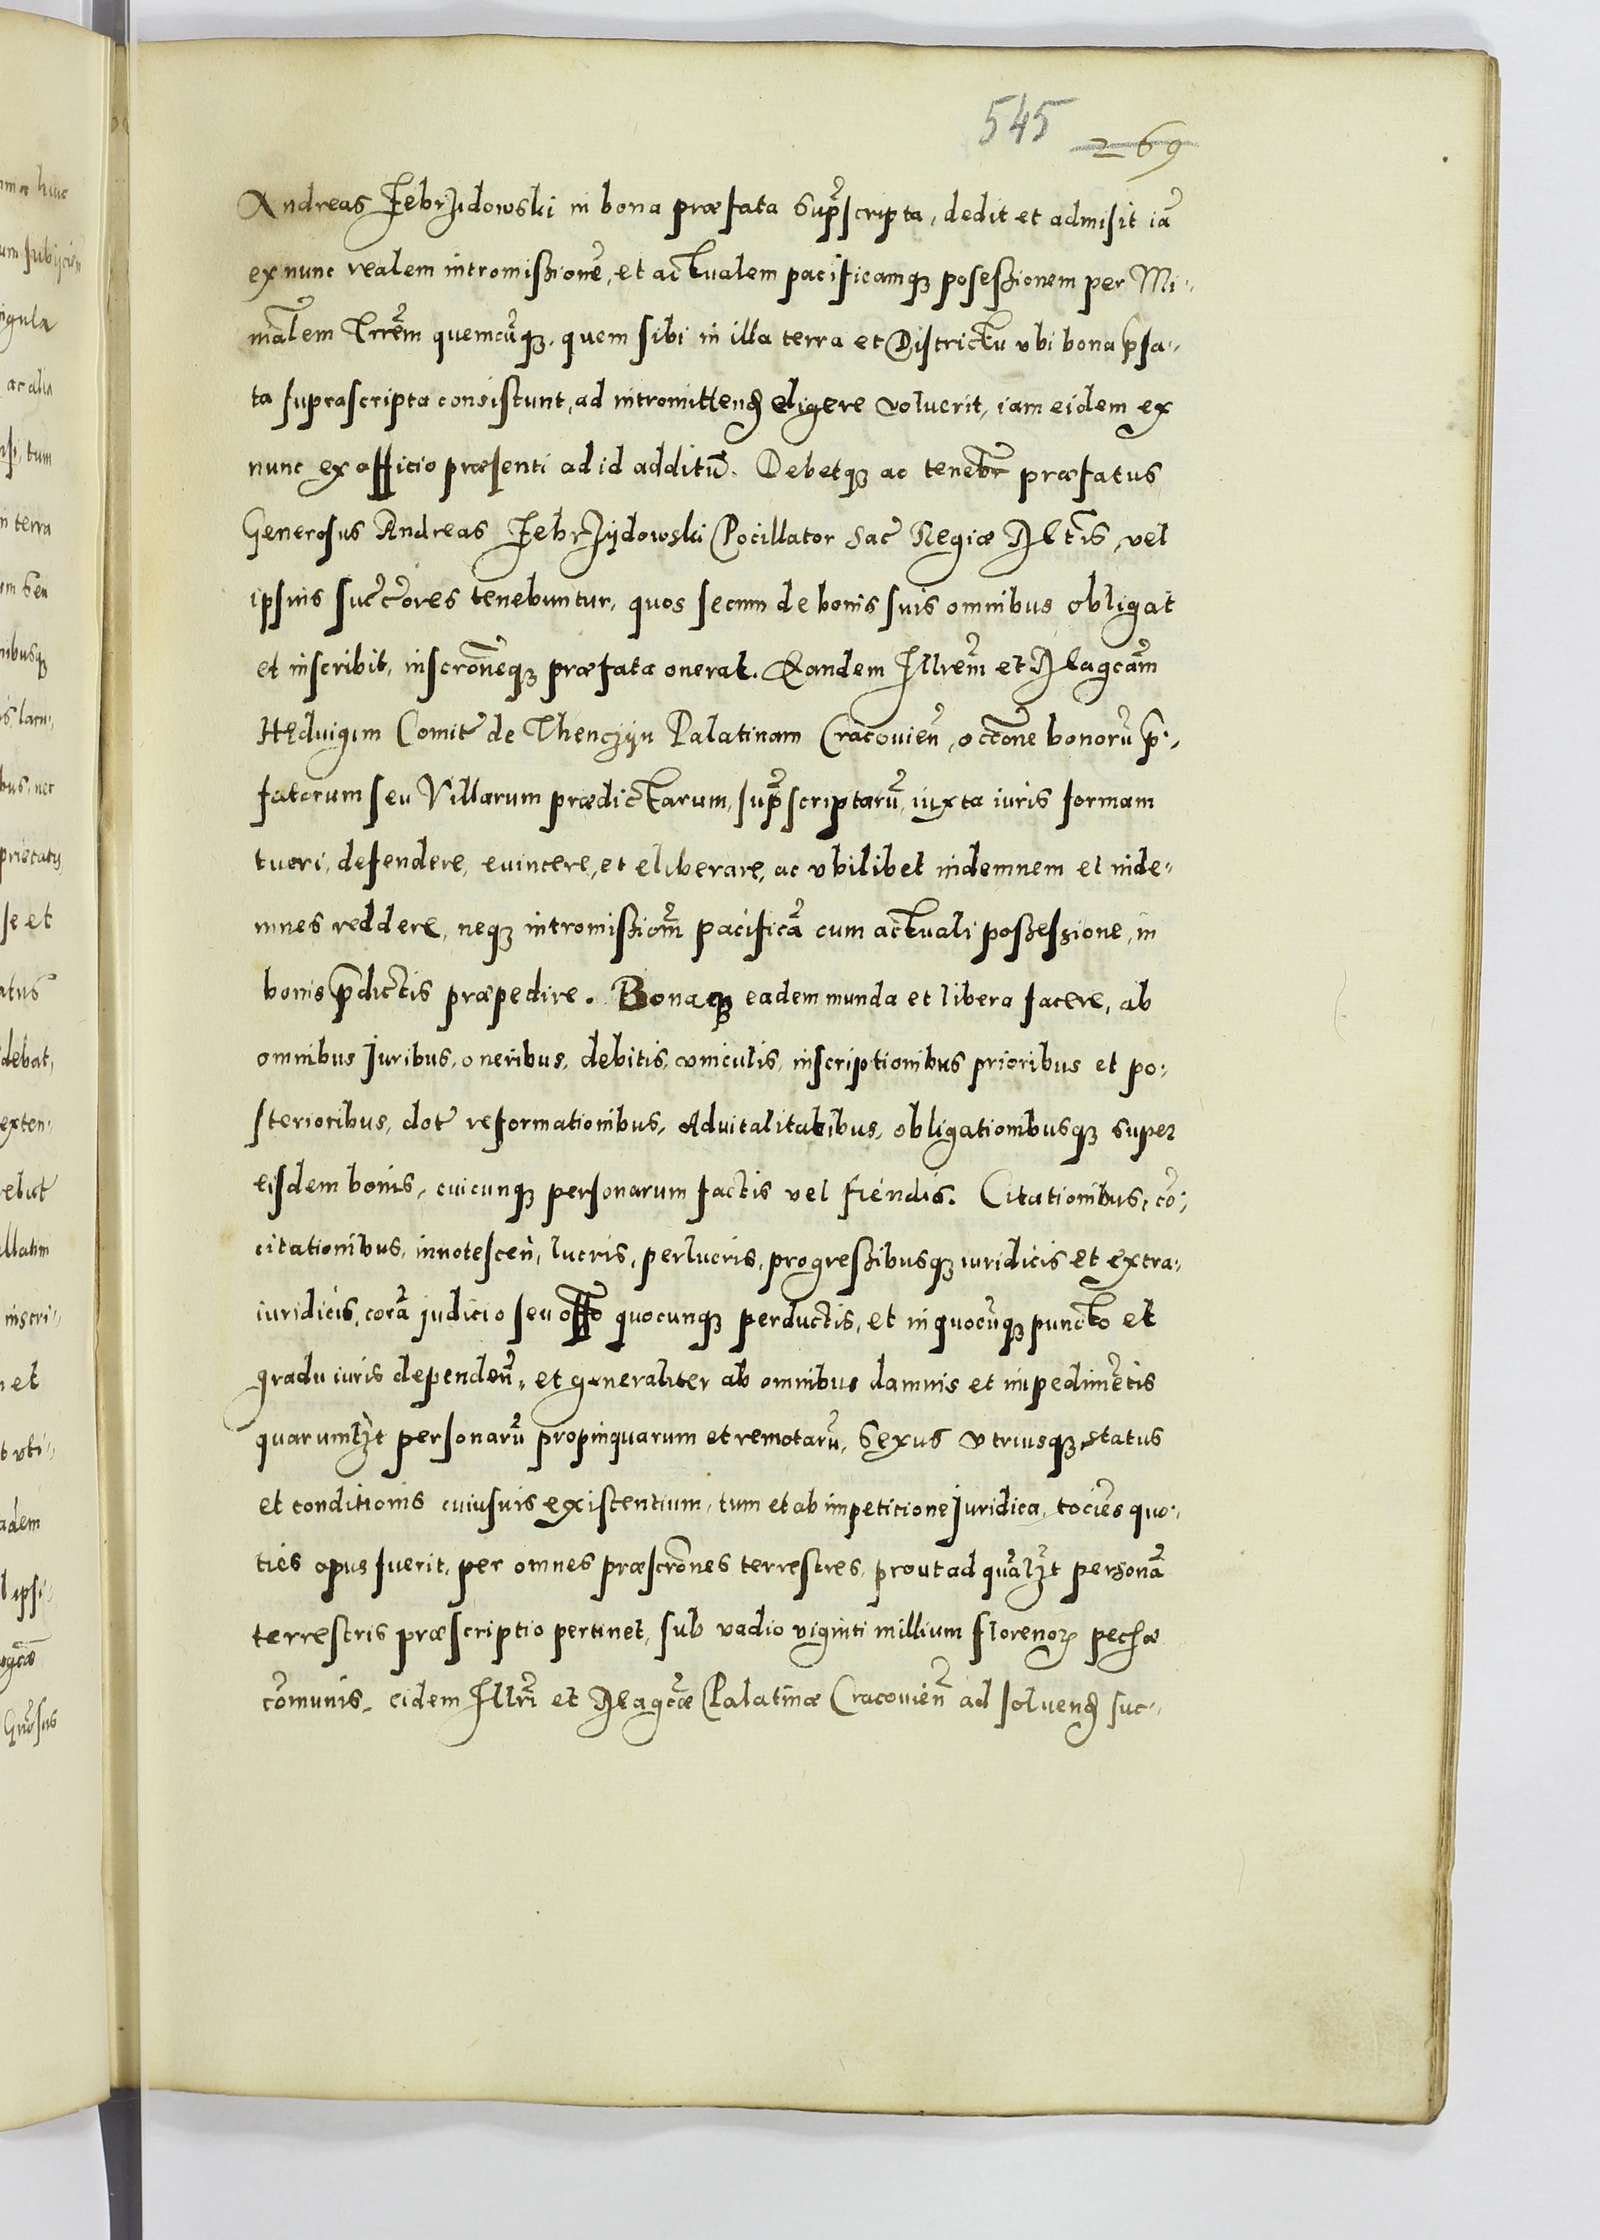 545 269
Andreas Zebrzidowski in bona præfata supᷓscripta, dedit et admisit iã
ex nunc realem intromissionẽ, et actualem pacificamqꝫ posessionem per Mi-
nr̃alem Trrẽm quemcũqꝫ, quem sibi in illa terra et Districtu vbi bona p̱fa-
ta suprascripta consistunt, ad intromittenḏ eligere voluerit, iam eidem ex
nunc ex officio præsenti ad id additũ. Debetqꝫ ac tenebr̃ præfatus
Generosus Andreas Zebrzydowski Pocillator Sac̃ Regiæ Mt̃is, vel
ipsius succ̃ores tenebuntur, quos secum de bonis suis omnibus obligat
et inscribit, inscrõneqꝫ præfata onerat. Eandem Illrẽm et Magcãm
Hedvigim Comit̃ de Thenczyn Palatinam Cracovieñ, occõne bonorũ p̱-
fatorum seu Villarum prædictarum, supᷓscriptarũ, iuxta iuris formam
tueri, defendere, euincere, et eliberare, ac vbilibet indemnem et inde-
mnes reddere, neqꝫ intromissiom̃ pacificã cum actuali possessione, in
bonis p̄dictis præpedire. Bonaqꝫ eadem munda et libera facere, ab
omnibus Juribus, oneribus, debitis, vinculis, inscriptionibus prioribus et po-
sterioribus, dot̃ reformationibus, Aduitalitatibus, obligationibusqꝫ super
eisdem bonis, cuicunqꝫ personarum factis vel fiendis. Citationibus, cõ-
citationibus, innotesceñ, lucris, perlucris, progressibusqꝫ iuridicis et extra-
iuridicis, corã judicio seu off̃o quocunqꝫ perductis, et in quocũqꝫ puncto et
gradu iuris dependeñ, et generaliter ab omnibus damnis et impedimẽtis
quarumlꝫt personarũ propinquarum et remotarũ, Sexus vtriusqꝫ status
et conditionis cuiusuis existentium, tum et ab impeticione Juridica, tocies quo-
ties opus fuerit, per omnes præscrõnes terrestres, prout ad quãlꝫt personã
terrestris præscriptio pertinet, sub vadio viginti millium florenoꝝ pecĩæ
cõmunis, eidem Illr̃i et Magcæ̃ Palatinæ Cracovieñ ad soluenḏ suc-